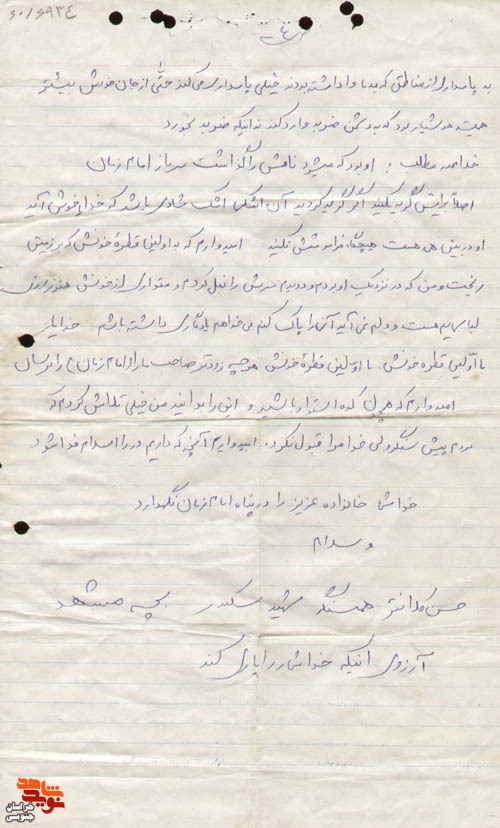 ۶۰/۶۹۳٤
-٤-
به پاسداری از مناطقی که به ما واداشته بودند خیلی پاسداری می کند حتّی از جان خودش بیشتر
همیشه هوشیار بود که به دشمن ضربه وارد کند نه اینکه ضربه بخورد
خلاصه مطلب : او بود که میشود نامش را گذاشت سرباز امام زمان
اصلاً برایش گریه نکنید اگر گریه کردید آن اشکی اشک شادی باشد که خدا خوشش آید
او در بین ما هست هیچگاه فراموشش نکنید امیدوارم که به اولین قطرهٔ خونش که بر زمین
ریخت و من که در نزدیک او بودم و دویدم سرش را بغل کردم و مقداری از خونش هنوز
لباسهایم هست و دلم نمی آید آنرا پاک کنم می خواهم یادگاری داشته باشم خدایا
با اوّلین قطره خونش . با اوّلین قطرهٔ خونش هر چه زودتر صاحب ما را (امام زمان) را برسان
امیدوارم که همچون کوه استوار باشید و این را بدانید من خیلی تلاش کردم که
بردم پیش سنگر ولی خدا مرا قبول نکرد. امیدوارم آنچه که داریم در راه اسلام فدا شود
خدا شما خانواده عزیز را در پناه امام زمان نگهدارد
والسلام
حسن کلانتر همسنگر شهید سکندری بچه مشهد
آرزوی اینکه خدا شما را یاری کند
شاهد
نوید
خراسان
جنوبی